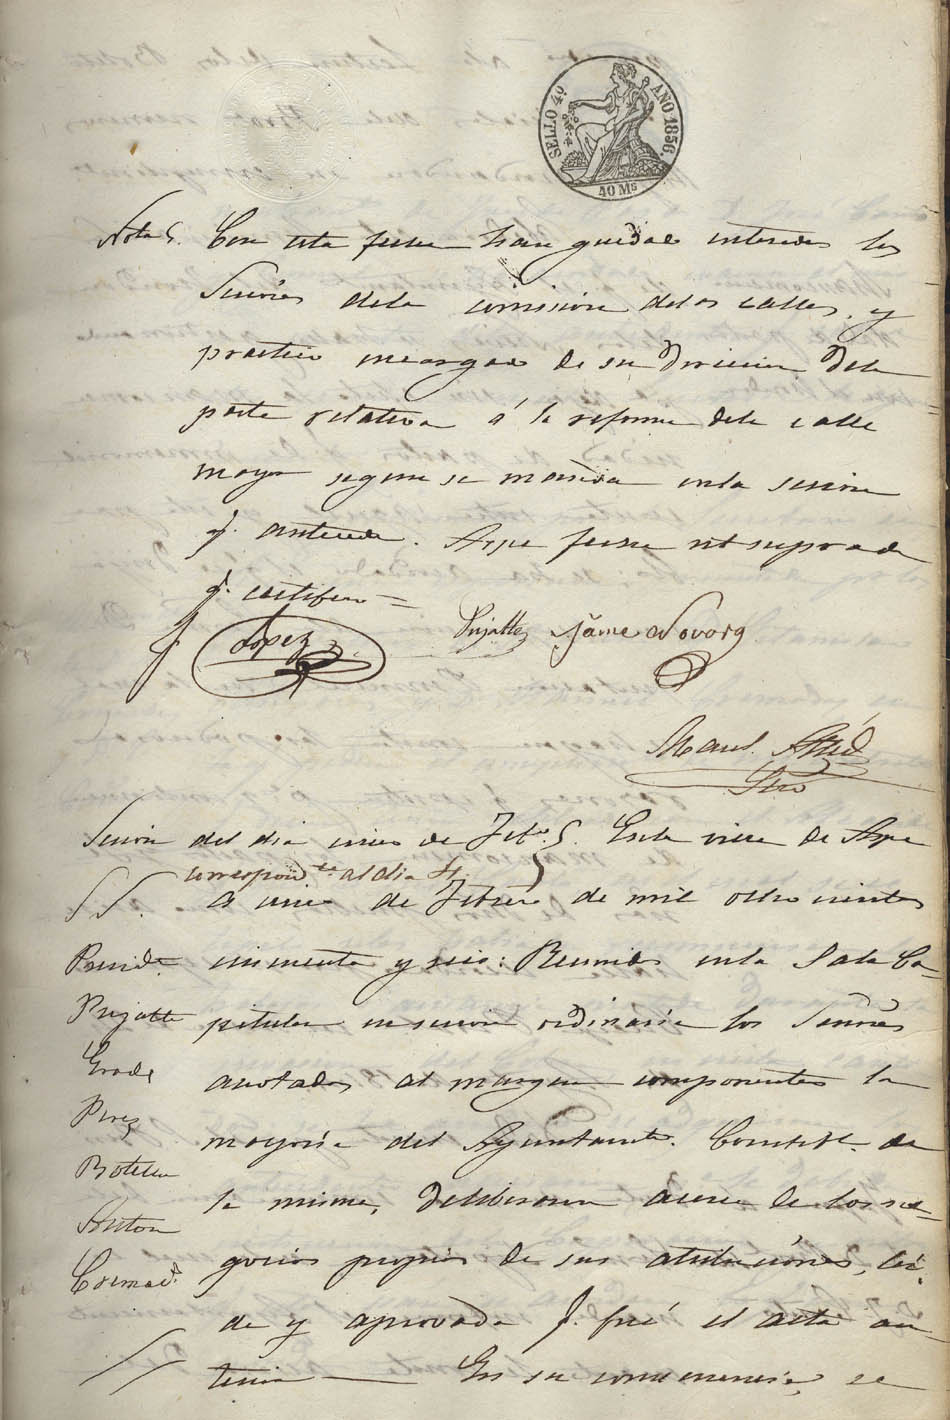 SELLO 4º AÑO 1856.
40 Ms
Nota S. Con esta fecha han quedado enterados los
Señores dela comision delas calles, y
practico encargado de su Direccion dela
parte relativa á la reforma dela calle
mayor segun se manda enla sesion
q. antecede. Aspe fecha ut supra de
q. certifico =
Lopez
Pujalte Jáime
Man.l
Srio
Sesion del dia cinco de Feb.o S. Enla villa de Aspe
correspond.te al dia 4.
SS. a cinco de Febrero de mil ochocientos
Presid.te cincuenta y seis: Reunidos enla Sala Ca-
Pujalte pitular en sesion ordinaria los Señores
anotados al margen componentes la
Perez
mayoria del Ayuntamto. Constl. de
Botella
la misma, deliberaron acerca de los ne-
Anton
gocios propios de sus atribuciones, lei-
Cremad.s
da y aprovada q. fué el acta an-
terior — En su consecuencia, se